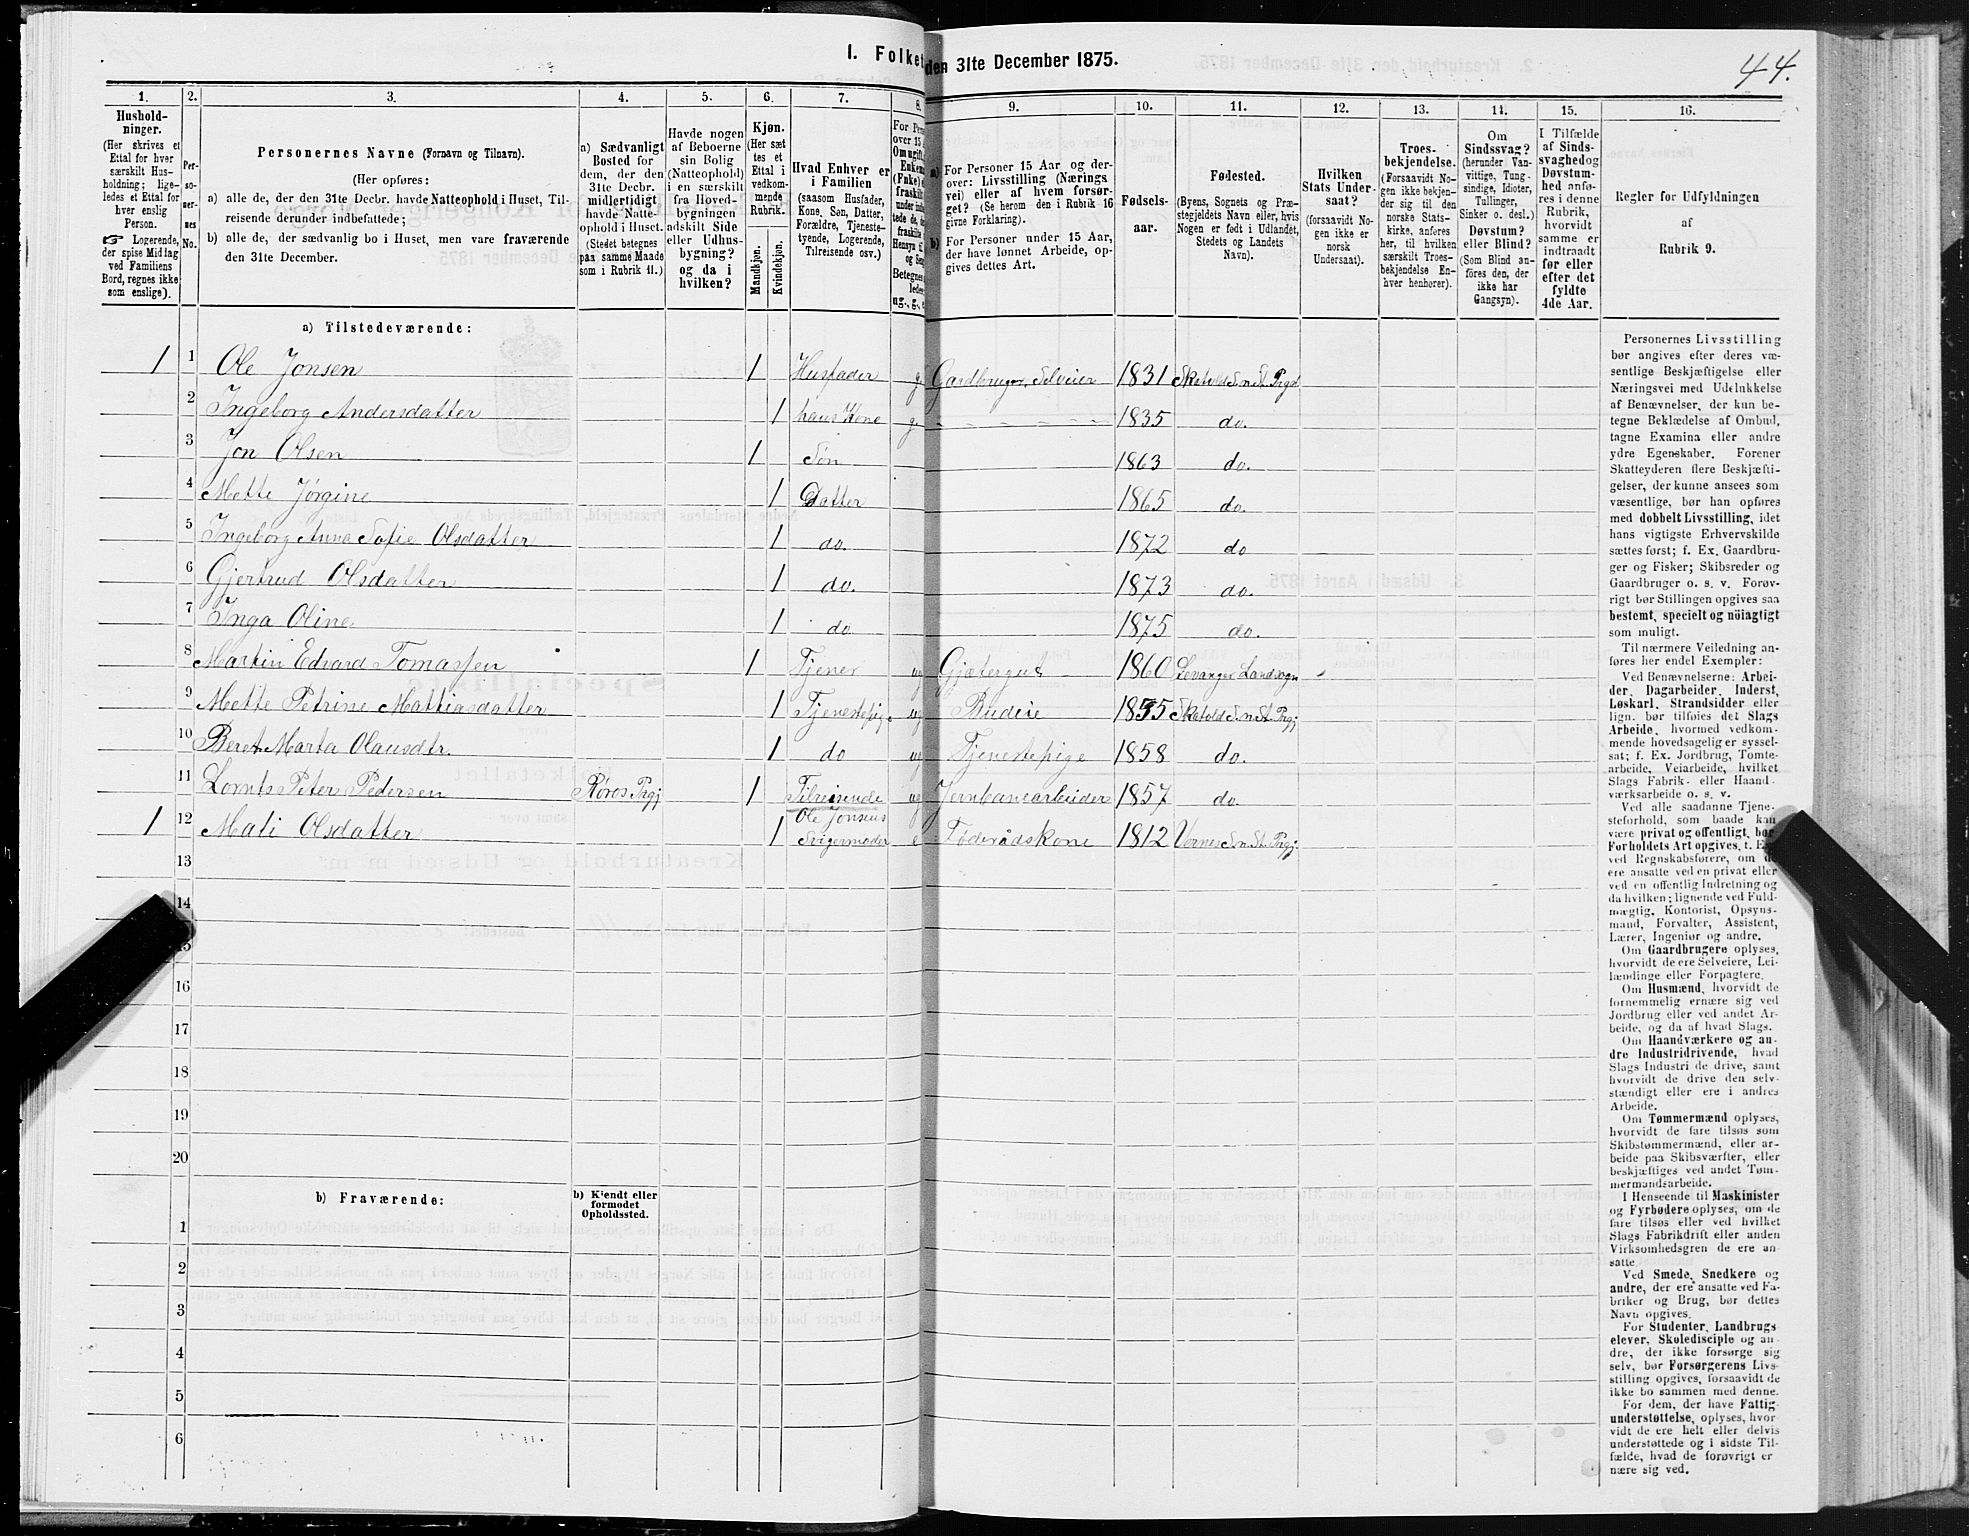 I. Folket
den 31te December 1875.
44.
1.
2.
3.
4.
5.
6.
7.
8.
9.
10.
11.
12.
13.
14.
15.
16.
Hushold-
ninger.
(Her skrives et
Ettal for hver
særskilt Hus-
holdning; lige-
ledes et Ettal for
hver enslig
Person.
☞ Logerende,
der spise Middag
ved Familiens
Bord, regnes ikke
som enslige).
Per-
so-
ner-
nes
No.
Personernes Navne (Fornavn og Tilnavn).
(Her opføres:
a) alle de, der den 31te Decbr. havde Natteophold i Huset, Til-
reisende derunder indbefattede;
b) alle de, der sædvanlig bo i Huset, men vare fraværende
den 31te December.
a) Sædvanligt
Bosted for
dem, der den
31te Decbr.
midlertidigt
havde Natte-
ophold i Huset.
(Stedet betegnes
paa samme Maade
som i Rubrik 11.)
Havde nogen
af Beboerne
sin Bolig
(Natteophold)
i en særskilt
fra Hoved-
bygningen
adskilt Side
eller Udhus-
bygning?
og da i
hvilken?
Kjøn.
(Her sæt
tes et
Ettal i
vedkom-
mende
Rubrik.
Mandkjøn.
Kvindekjøn.
Hvad Enhver er
i Familien
(saasom Husfader,
Kone, Søn, Datter,
Forældre, Tjeneste-
tyende, Logerende,
Tilreisende osv.)
For Pers
over 15 A
Om ugift,
Enkem
(Enke) e
fraskilt
a) For Personer 15 Aar og der-
over: Livsstilling (Nærings
vei) eller af hvem forsør-
get? (Se herom den i Rubrik 16
givne Forklaring).
b) For Personer under 15 Aar,
der have lønnet Arbeide, op-
gives dettes Art.
Fødsels-
aar.
Fødested.
(Byens, Sognets og Præ-
stegjeldets Navn eller, hvis
Nogen er født i Udlandet,
Stedets og Landets
Navn).
Hvilken
Stats Under-
saat?
(forsaavidt No-
gen ikke er
norsk
Undersaat).
Troes-
bekjendelse.
(Forsaavidt No-
gen ikke bekjen-
der sig til den
norske Stats-
kirke, anføres
her, til hvilken
særskilt Troes-
bekjendelse En-
hver henhører).
Om
Sindssvag?
(herunder Van-
vittige, Tung-
sindige, Idioter,
Tullinger,
Sinker o. desl.)
Døvstum?
eller Blind?
(Som Blind an-
föres den, der
ikke har
Gangsyn).
I Tilfælde
af Sinds-
svaghed og
Døvstum-
hed anfø-
res i denne
Rubrik,
hvorvidt
samme er
indtraadt
før eller
efter det
fyldte
4de Aar.
Regler for Udfyldningen
af
Rubrik 9.
a) Tilstedeværende:
1 1 Ole Jonsen 1 Husfader g. Gardbruger, Selveier 1831 Skatvold S. n. St. Prgd
2 Ingeborg Andersdatter 1 hans Kone g. 1835 do.
3 Jon Olsen 1 Søn 1863 do.
4 Mette Jørgine 1 Datter 1865 do.
5 Ingeborg Anna Sofie Olsdatter 1 do. 1872 do
6 Gjertrud Olsdatter 1 do. 1873 do.
7 Inga Oline 1 do 1875 do.
8 Martin Edvard Tomassen 1 Tjener ug Gjætergut 1860 Levanger Landsogn
9 Mette Petrine Mattiasdatter 1 Tjenestepige ug Budeie 1855 Skatvold S. n. St. Prgj
10 Beret Marta Olausdtr. 1 do ug Tjenestepige 1858 do.
11 Lornts Peter Pedersen Røros Prgj 1 Tilreisende ug Jernbanearbeider 1857 do.
1 12 Mali Olsdatter 1 Ole Jonsens Svigermoder e Føderådskone 1812 Vernes S. n. St. Prgj.
13
14
15
16
17
18
19
20
b) Fraværende:
b) Kjendt eller
formodet
Opholdssted.
1
2
3
4
5
6
Personernes Livsstilling
bør angives efter deres væ-
sentlige Beskjæftigelse eller
Næringsvei med Udelukkelse
af Benævnelser, der kun be-
tegne Beklædelse af Ombud,
tagne Examina eller andre
ydre Egenskaber. Forener
Skatteyderen flere Beskjæfti-
gelser, der kunne ansees som
væsentlige, bør han opføres
med dobbelt Livsstilling, idet
hans vigtigste Erhvervskilde
sættes først; f. Ex. Gaardbru-
ger og Fisker; Skibsreder og
Gaardbruger o. s. v. Forøv-
rigt bør Stillingen opgives saa
bestemt, specielt og nöiagtigt
som muligt.
Til nærmere Veiledning an-
føres her endel Exempler:
Ved Benævnelserne: Arbei-
der, Dagarbeider, Inderst,
Løskarl, Strandsidder eller
lign. bør tilføies det Slags
Arbeide, hvormed vedkom-
mende hovedsagelig er syssel-
sat; f. Ex. Jordbrug, Tomte-
arbeide, Veiarbeide, hvilket
Slags Fabrik- eller Haand-
værksarbeide o. s. v.
Ved alle saadanne Tjene-
steforhold, som baade kan
være privat og offentligt, bør
Forholdets Art opgives, t. Ex.
ved Regnskabsførere, om de
ere ansatte ved en privat eller
ved en offentlig Indretning og
da hvilken; lignende ved Fuld-
mægtig, Kontorist, Opsyns-
mand, Forvalter, Assistent,
Lærer, Ingeniør og andre.
Om Gaardbrugere oplyses,
hvorvidt de ere Selveiere, Lei-
lændinge eller Forpagtere.
Om Husmænd, hvorvidt de
fornemmelig ernære sig ved
Jordbrug eller ved andet Ar-
beide, og da af hvad Slags.
Om Haandværkere og an-
dre Industridrivende, hvad
Slags Industri de drive, samt
hvorvidt de drive den selv-
stændigt eller ere i andres
Arbeide.
Om Tømmermænd oplyses,
hvorvidt de fare tilsøs som
Skibstømmermænd, eller ar-
beide paa Skibsværfter, eller
beskjæftiges ved andet Tøm-
mermandsarbeide.
I Henseende til Maskinister
og Fyrbødere oplyses, om de
fare tilsøs eller ved hvilket
Slags Fabrikdrift eller anden
Virksomhedsgren de ere an-
satte.
Ved Smede, Snedkere og
andre, der ere ansatte ved Fa-
briker og Brug, bør dettes
Navn opgives.
For Studenter, Landbrugs
elever, Skoledisciple og an-
dre, der ikke forsørge sig
selv, bør Forsørgerens Livs-
stilling opgives, forsaavidt de
ikke bo sammen med denne.
For dem, der have Fattig-
understøttelse, oplyses, hvor-
vidt de ere helt eller delvis
understøttede og i sidste Til-
fælde, hvad de forøvrigt er
nære sig ved.